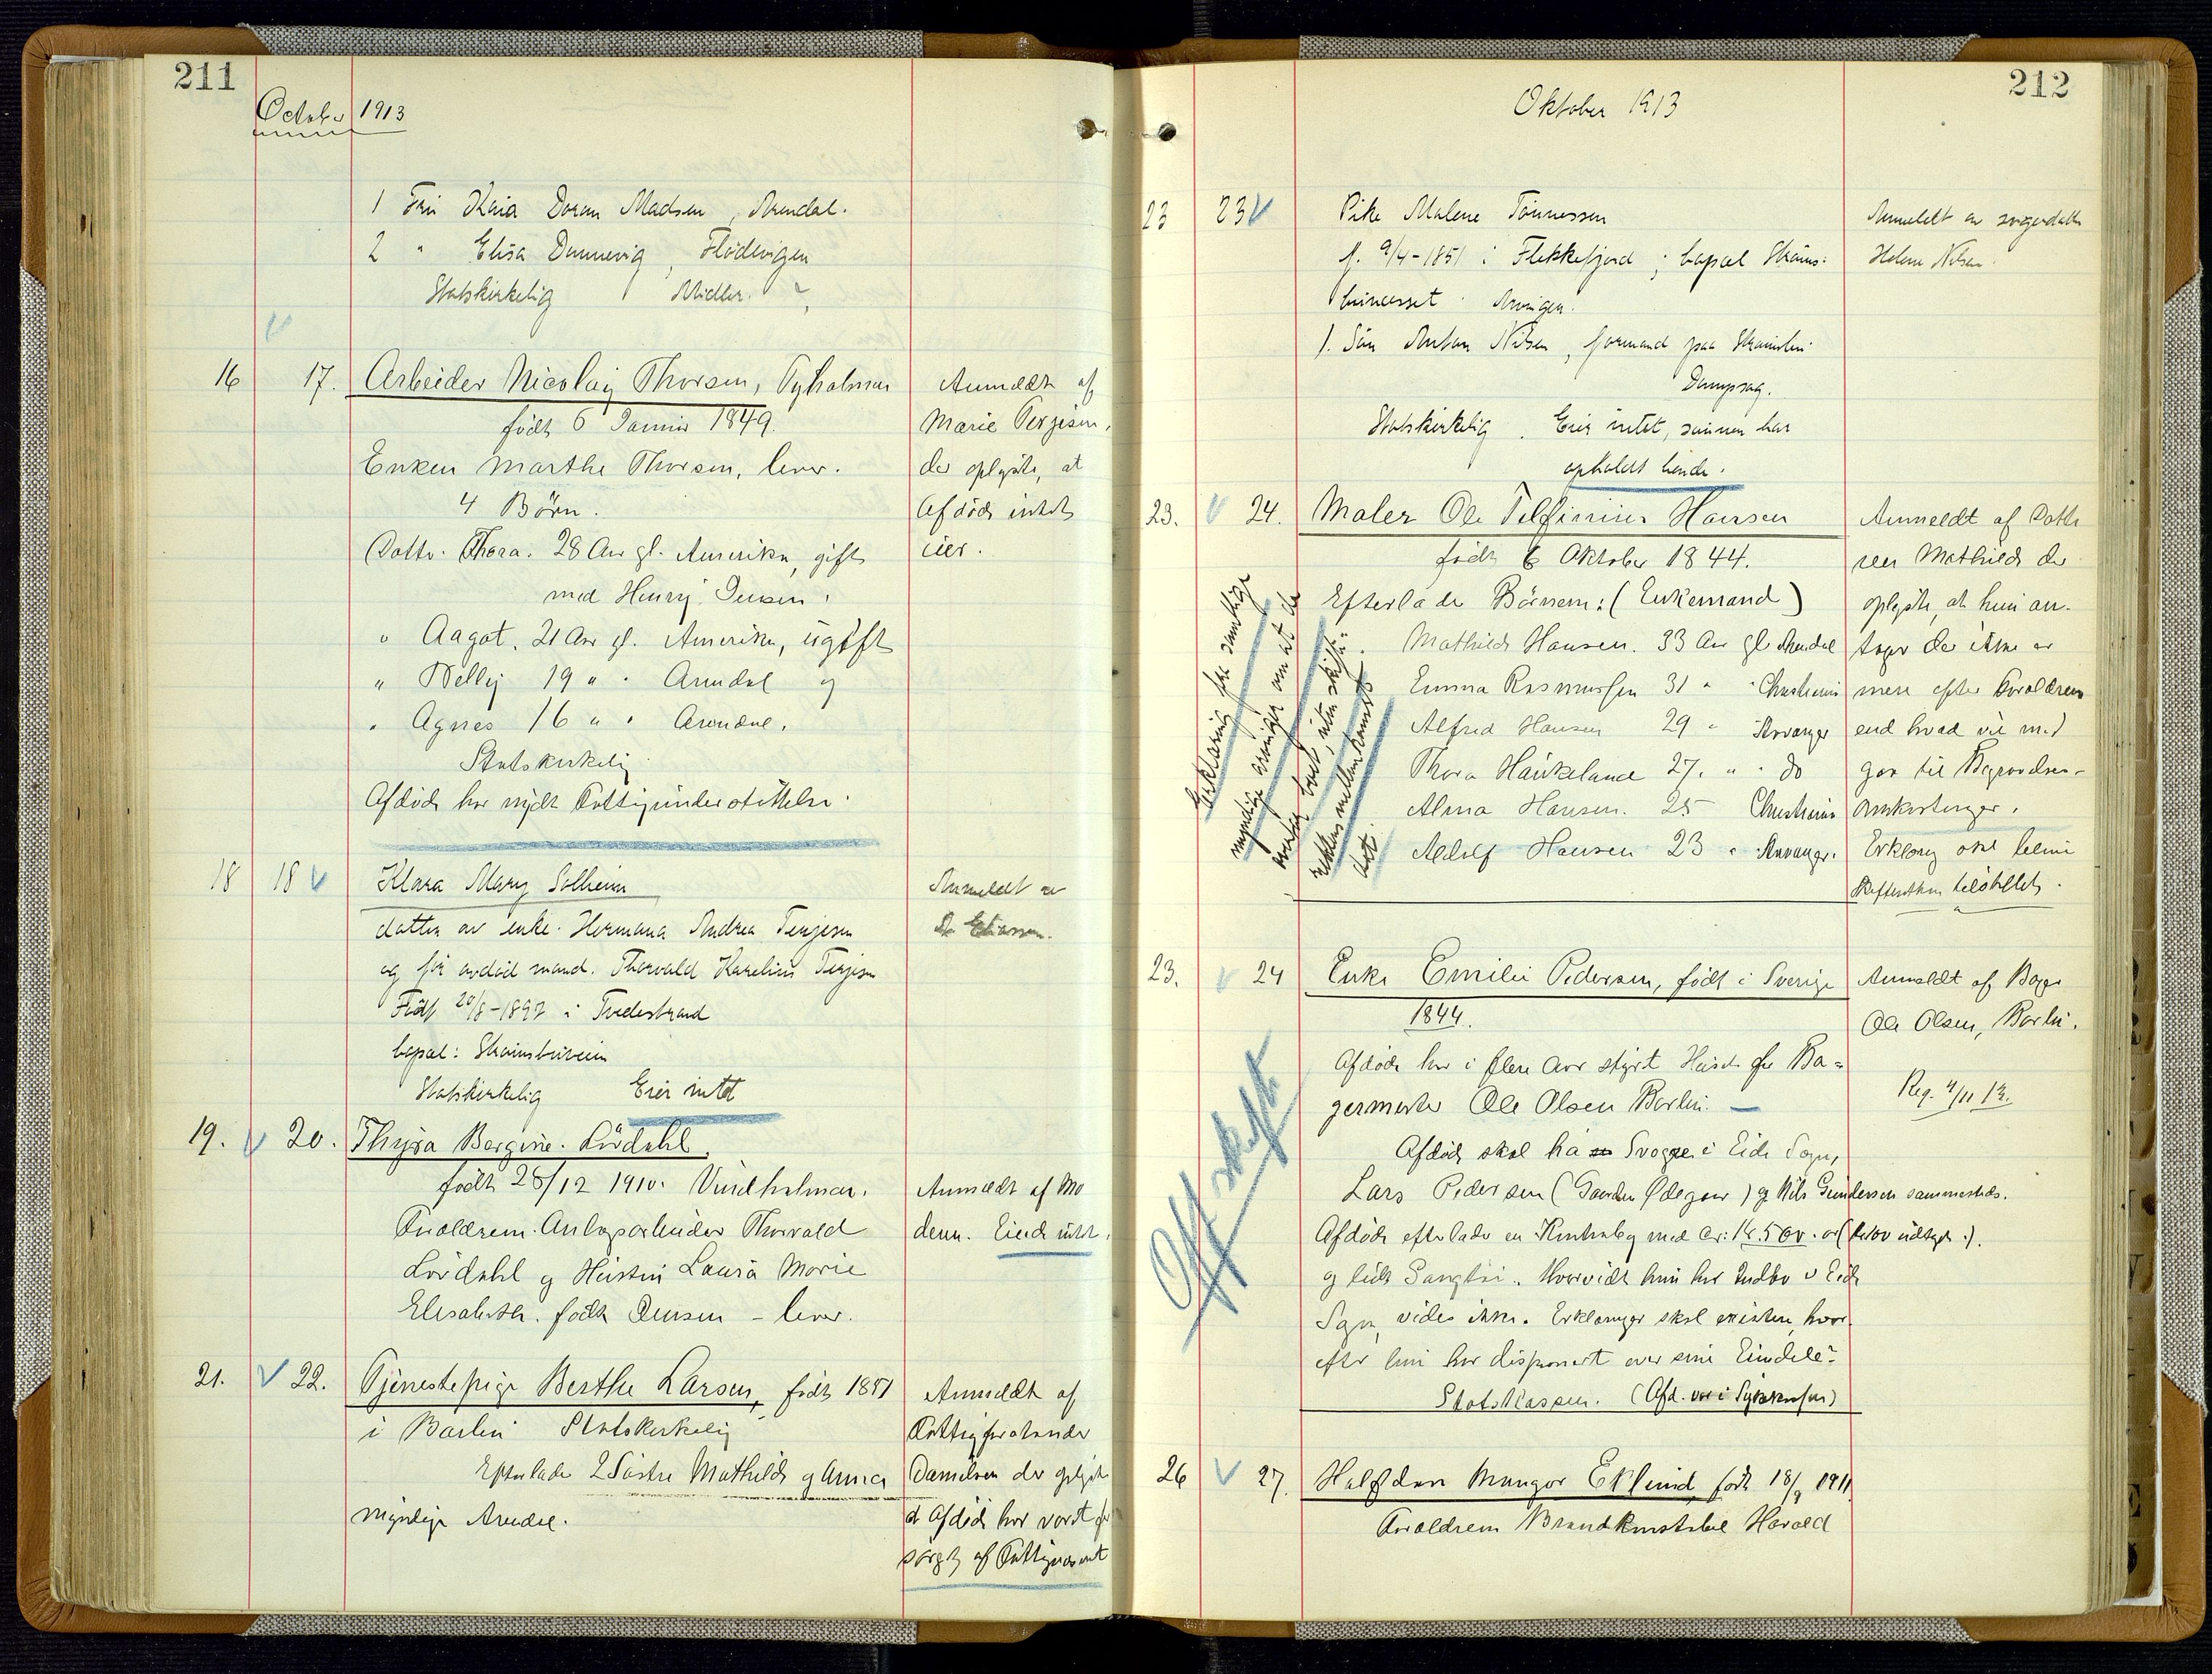 211
October 1913
1 Fru Kaia Doran Madsen, Arendal.
2 " Elisa Dannevig, Flödevigen
Statskirkelig Midler ?
16 17. Arbeider Nicolay Thorsen, Tyholmen
född 6 Januar 1849.
Enken Marthe Thorsen, lever.
4 Börn.
Datter Thora. 28 Aar gl. Amerika, gift
med Henry Jensen.
" Aagot. 21 Aar gl. Amerika, ugift
" Nelly 19 " " Arendal og
" Agnes 16 " " Arendal.
Statskirkelig
Afdöde har nydt Fattigunderstöttelse.
Anmeldt af
Marie Terjesen,
der oplyste, at
Afdöde intet
eier.
18 18 Klara Mary Solheim
datter av enke Hermana Andrea Terjesen
og för avdöd mand. Thorvald Karelius Terjesen
Född 20/8-1897 i Tvedestrand
bopæl: Strömsbuveien
Statskirkelig Eier intet
Anmeldt av
Dr Eliassen.
19. 20. Thyra Bergine Lördahl.
född 28/12 1910. Vindholmen.
Forældrene Anlægsarbeider Thorvald
Lördahl og Hustru Laura Marie
Elisabeth född Jensen - lever.
Anmeldt af Mo
deren. Eiede intet.
21. 22. Tjenestepige Berthe Larsen, född 1851
i Barbu Statskirkelig
Efterlader 2 Söstre Mathilde og Anna
myndige Arendal.
Anmeldt af
Fattigforstander
Danielsen der oplyste
at Afdöde har vært for
sörget af Fattigvæsenet
212
Oktober 1913
23 23 Pike Malene Tönnessen
f. 9/4-1851 i Flekkefjord; bopæl Ströms:
buneset. Arvinger.
1. Sön Anton Nilsen, formand paa Strömsbu
Dampsag.
Statskirkelig. Eier intet, sönnen har
opholdt hende.
Anmeldt av svigerdatter
Helene Nilsen
23. 24. Maler Ole Hansen
född 6 Oktober 1844.
Efterlader Börnene: (Enkemand)
Mathilde Hansen. 33 Aar gl. Arendal
Emma Rasmussen 31 " " Christiania
Alfred Hansen 29 " Stavanger
Thora Haukeland 27. " " do
Alma Hansen. 25 Christiania
Adolf Hansen 23 " Stavanger.
Erklæring fra samtlige
myndige arvinger om at de
Anmeldt af Datte
ren Mathilde der
oplyste, at hun an-
tager der ikke er
mere efter Forældrene
end hvad vil med
gaa til Begravelses-
omkostninger.
Erklæring skal blive
Skifteretten tilstillet.
23. 24 Enke Emilie Pedersen, född i Sverige
1844.
Afdöde har i flere Aar styrt Huset for Ba-
germester Ole Olsen Barbu. —
Afdöde skal ha Svogre i Eide Sogn,
Lars Pedersen (Gaarden Ødegaar) og Nils Gundersen sammesteds.
Afdöde efterlader en Kontrabog med
og lidt Sengtöi. Hvorvidt hun har Indbo i Eide
Sogn, vides ikke. Erklæringer skal existere, hvor
efter hun har disponert over sine Eiendele.
Statskassen. (Afd. var i Sykekassen)
Off. skifte
Anmeldt af Bager
Ole Olsen, Barbu.
Reg. 4/11 13.
26 27. Halfdan Mangor Eklund född 18/9 1911
Forældrene Brandkonstabel Harald